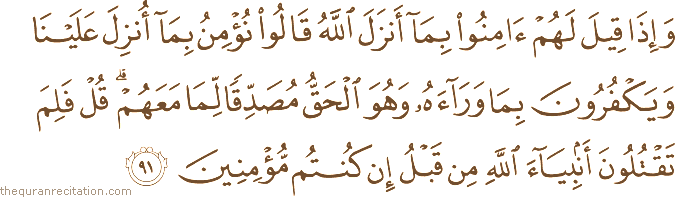 وَإِذَا قِيلَ لَهُمۡ ءَامِنُواْ بِمَآ أَنزَلَ ٱللَّهُ قَالُواْ نُؤۡمِنُ بِمَآ أُنزِلَ عَلَيۡنَا
وَيَكۡفُرُونَ بِمَا وَرَآءَهُۥ وَهُوَ ٱلۡحَقُّ مُصَدِّقٗا لِّمَا مَعَهُمۡۗ قُلۡ فَلِمَ
تَقۡتُلُونَ أَنۢبِيَآءَ ٱللَّهِ مِن قَبۡلُ إِن كُنتُم مُّؤۡمِنِينَ ٩١
thequranrecitation.com